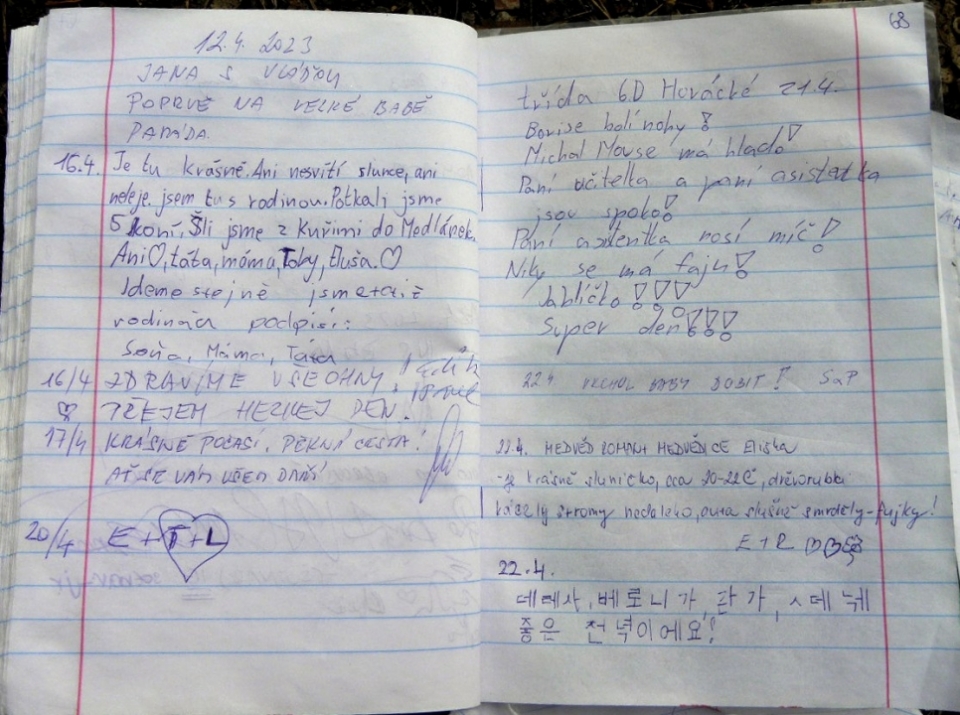 12.4. 2023
JANA S VLÁĎOU
POPRVÉ NA VELKÉ BABĚ
PARÁDA
16.4. Je tu krásně. Ani nesvítí slunce, ani
neleje. jsem tu s rodinou. Potkali jsme
5 koní. Šli jsme z Kuřimi do Medlánek.
Ani♡, táta, máma, Toby, Eluša.♡
Jdeme stejně jsme též
rodinka podpisi:
Soňa, Máma, Táta
16/4 ZDRAVÍME VŠECHNY,
PŘEJEM HEZKEJ DEN!
17/4 KRÁSNÉ POČASÍ. PĚKNÍ CESTA!
AŤ SE VÁM VŠEM DAŘÍ
20/4 E + T + L
68
třída 6.D Horácké 21.4.
Borise bolí nohy!
Michal Mouse má hlado!
Paní učitelka a paní asistetka
jsou spoko!
Paní asitentka nosí míč!
Niky se má fajn!
Jablíčko!!!
Super den!!!
22.4 VRCHOL BABY DOBIT! S+P
22.4. MEDVĚD ROMAN + MEDVĚDICE Eliška
- je krásně sluníčko, cca 20-22°C, dřevorubci
kácely stromy nedaleko, auta slušně smrděly - fujky!
E + R ♡♡
22.4.
데레사, 베로니가, 란가,
좋은 천녁이에요!